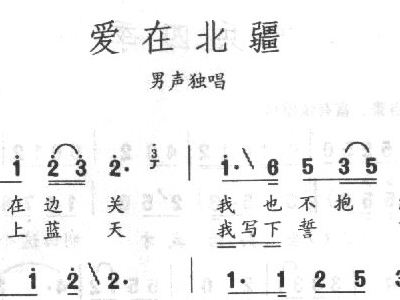 爱在北疆
男声独唱
i 2 3 2· 3 | i· 6 5 3 5
在边 关 我 也 不 抱
上蓝 天 我写下 誓
i 2 2· | 1· 1 2 5 3